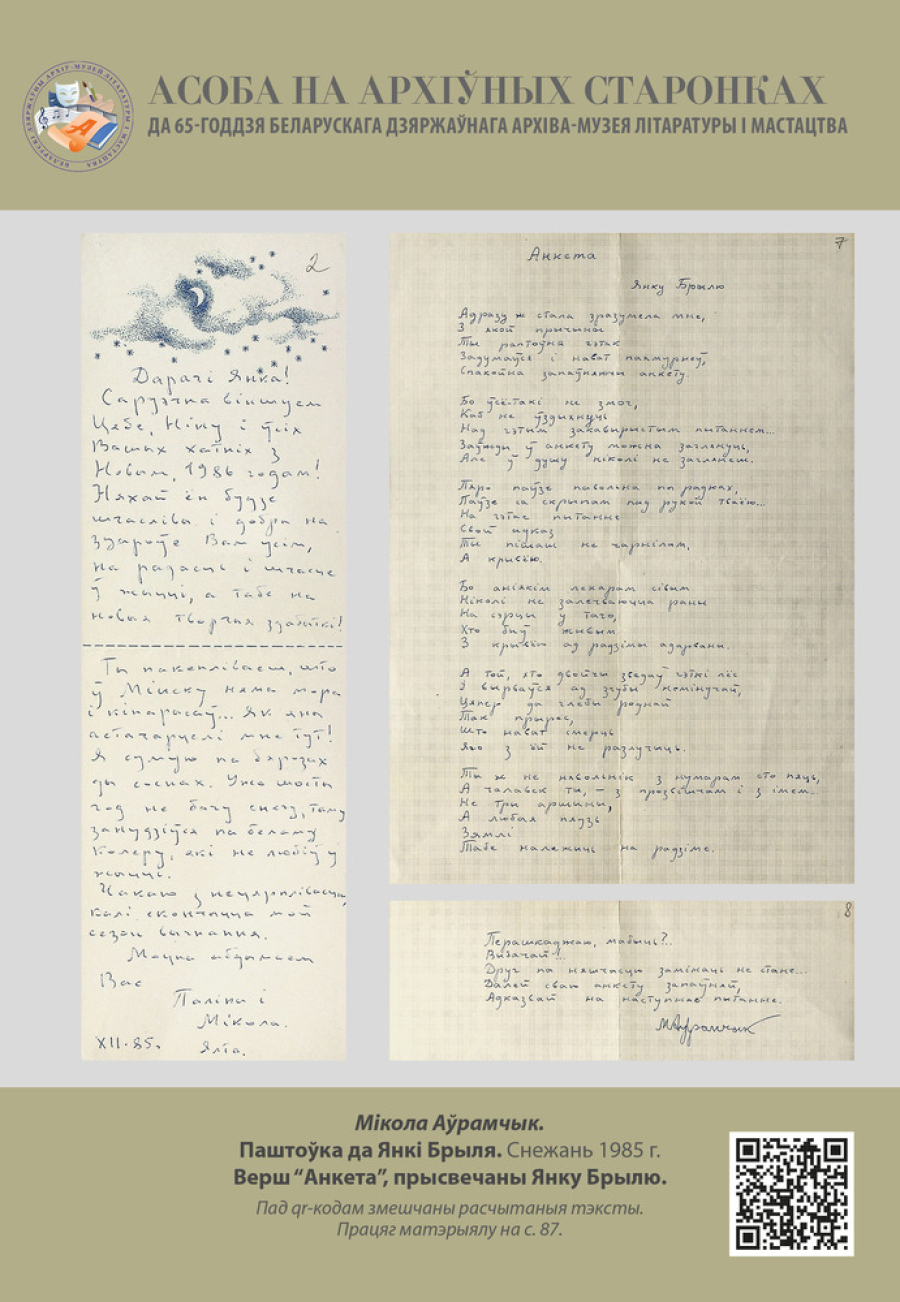 АСОБА НА АРХІЎНЫХ СТАРОНКАХ
ДА 65-ГОДДЗЯ БЕЛАРУСКАГА ДЗЯРЖАЎНАГА АРХІВА-МУЗЕЯ ЛІТАРАТУРЫ І МАСТАЦТВА
2
Дарагі Янка!
Сардэчна віншуем
Цябе, Ніну і ўсіх
Вашых хатніх з
Новым, 1986 годам!
Няхай ён будзе
шчаслівы і добры на
здароўе Вам усім,
на радасць і шчасце
ў жыцці, а табе на
новыя творчыя здабыткі!
Ты пакепліваеш, што
ў Мінску няма мора
і кіпарысаў... Як яны
астачарцелі мне тут!
Я сумую па бярозах
ды соснах. Ужо шосты
год не бачу снегу, таму
занудзіўся па беламу
колеру, які не любіў у
жыцці.
Чакаю з нецярплівасцю,
калі скончыцца мой
сезон выгнання.
Моцна абдымаем
Вас
Паліна і
Мікола.
XII-85.
Ялта.
7
Анкета
Янку Брылю
Адразу ж стала зразумела мне,
З якой прычыны
Ты раптоўна гэтак
Задумаўся і нават пахмурнеў,
Спакойна запаўняючы анкету.
Бо ўсё-такі не змог,
Каб не ўздыхнуць
Над гэтым закавырыстым пытаннем...
Заўжды ў анкету можна заглянуць,
Але ў душу ніколі не заглянеш.
Пяро паўзе павольна па радках,
Паўзе са скрыпам пад рукой тваёю...
На гэтае пытанне
Свой адказ
Ты пішаш не чарнілам,
А крывёю.
Бо аніякім лекарам сівым
Ніколі не залечваюцца раны
На сэрцы у таго,
Хто быў жывым
З крывёю ад радзімы адарваны.
А той, хто двойчы зведаў гэткі лёс
І вырваўся ад згубы немінучай,
Цяпер да глебы роднай
Так прырос,
Што нават смерць
Яго з ёй не разлучыць.
Ты ж не нявольнік з нумарам сто пяць,
А чалавек ты, – з прозвішчам і з імем...
Не тры аршыны,
А любая пядзь
Зямлі
Табе належыць на радзіме.
8
Перашкаджаю, мабыць?..
Выбачай!..
Друг па няшчасцю замінаць не стане...
Далей сваю анкету запаўняй,
Адказвай на наступнае пытанне.
МАўрамчык
Мікола Аўрамчык.
Паштоўка да Янкі Брыля. Снежань 1985 г.
Верш “Анкета”, прысвечаны Янку Брылю.
Пад qr-кодам змешчаны расчытаныя тэксты.
Працяг матэрыялу на с. 87.